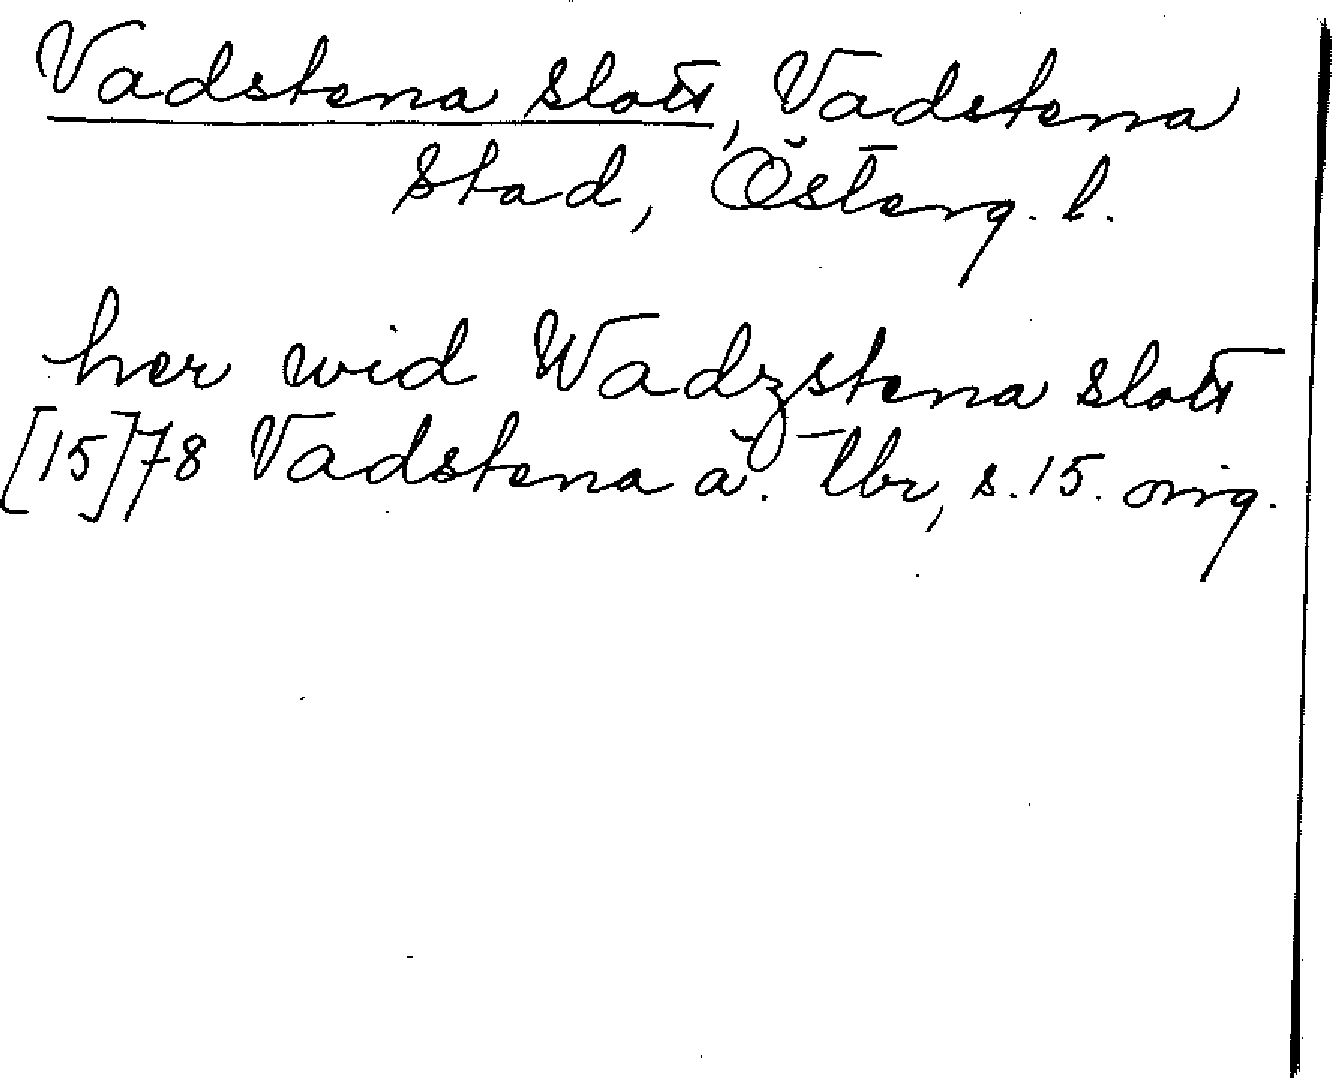 Vadstena slott, Vadstena
stad, Österg. l.
her wid Wadzstena slott
[15]78 Vadstena ä. tbr, s. 15. orig.